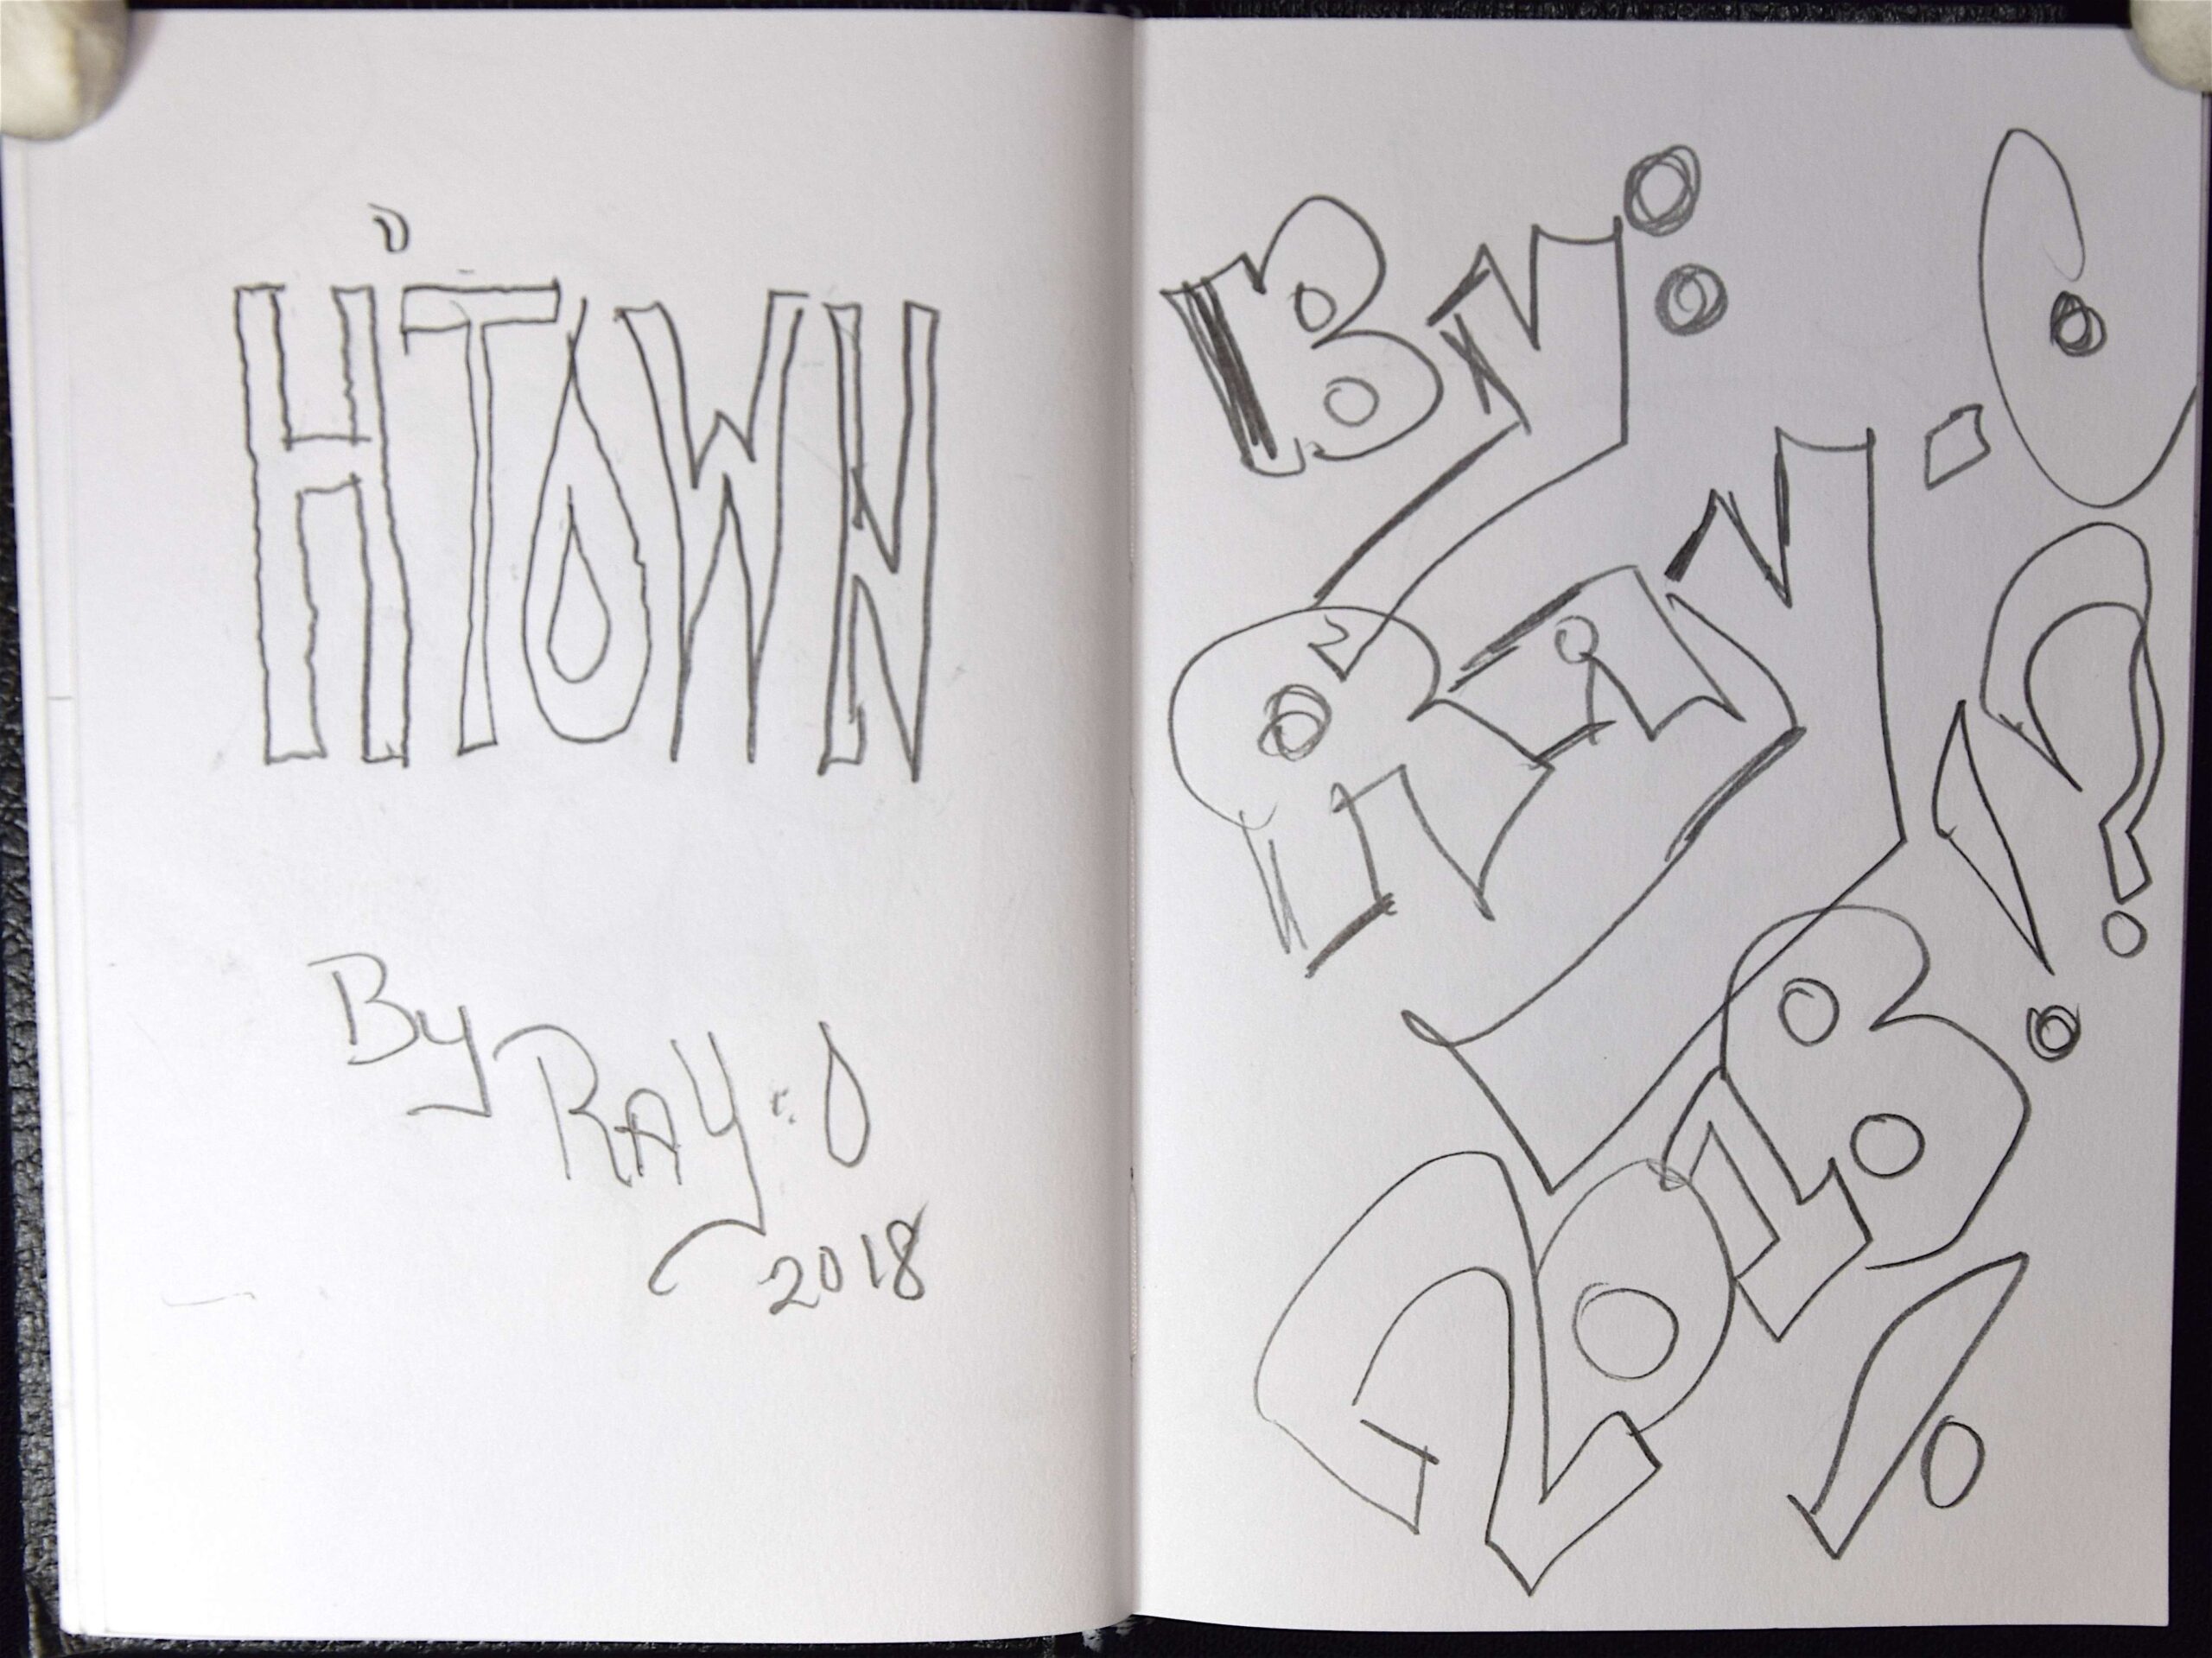 H'TOWN
By
RAY:O
2018
BY:
RAY-O
2018 ! ? !